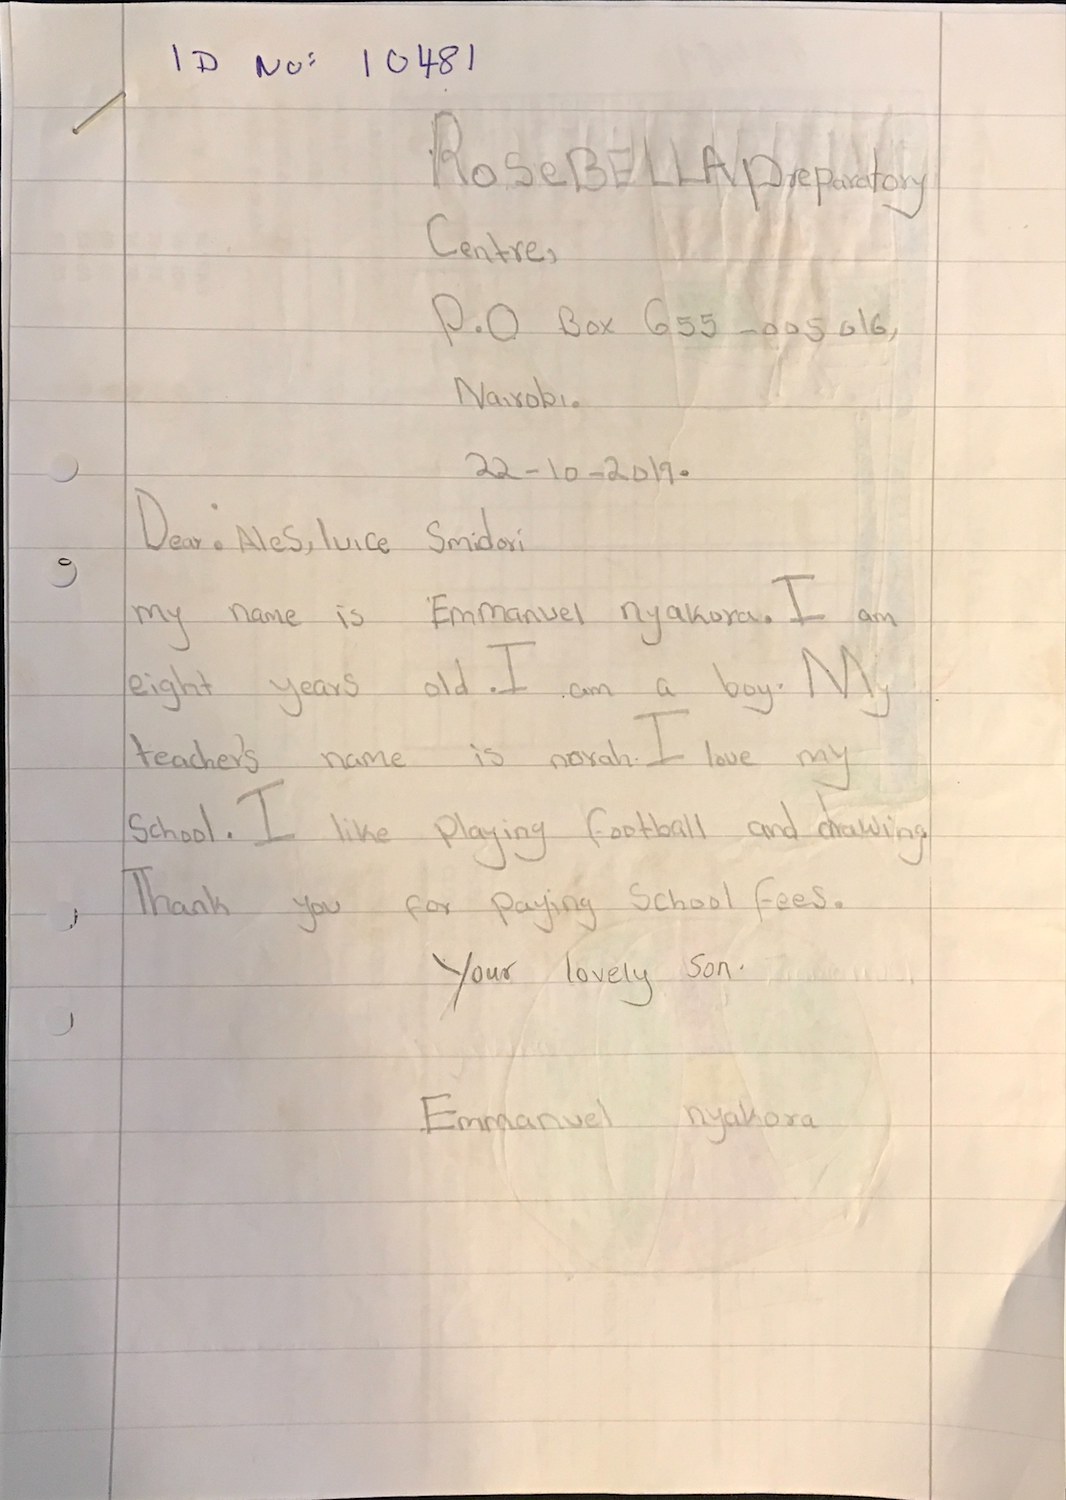 ID No: 10481
RoseBELLA preparatory
Centre,
P.O Box 655 -005016,
Nairobi.
22-10-2019.
Dear. Ales, luice Smidori
my name is Emmanuel nyakora. I am
eight years old. I am a boy. My
teacher's name is norah. I love my
School. I like playing football and drawing
Thank you for paying School fees.
Your lovely son.
Emmanuel nyakora